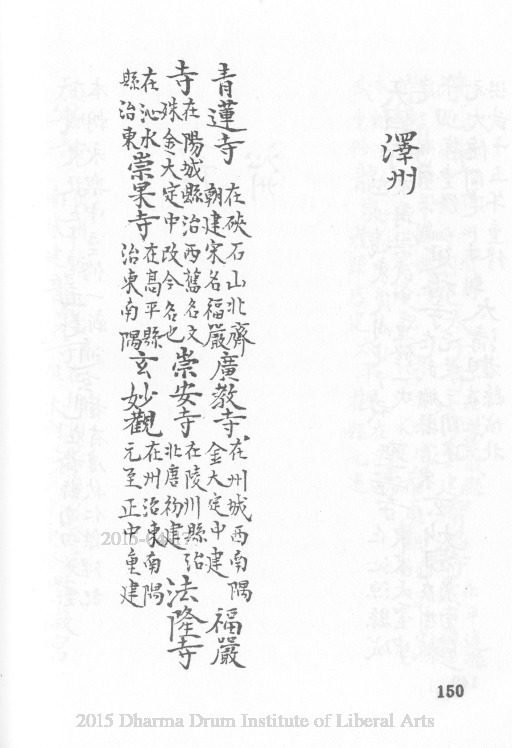 澤州
青蓮寺在硤石山北齊朝建宋名福嚴廣教寺在州城西南隅金大定中建福嚴
寺在陽城縣治西舊名文殊金大定中改今名也崇安寺在陵川縣治北唐初建法隆寺
在沁水縣治東崇果寺在高平縣治東南隅玄妙觀在州治東南隅元至正中重建
150
2015 Dharma Drum Institute of Liberal Arts